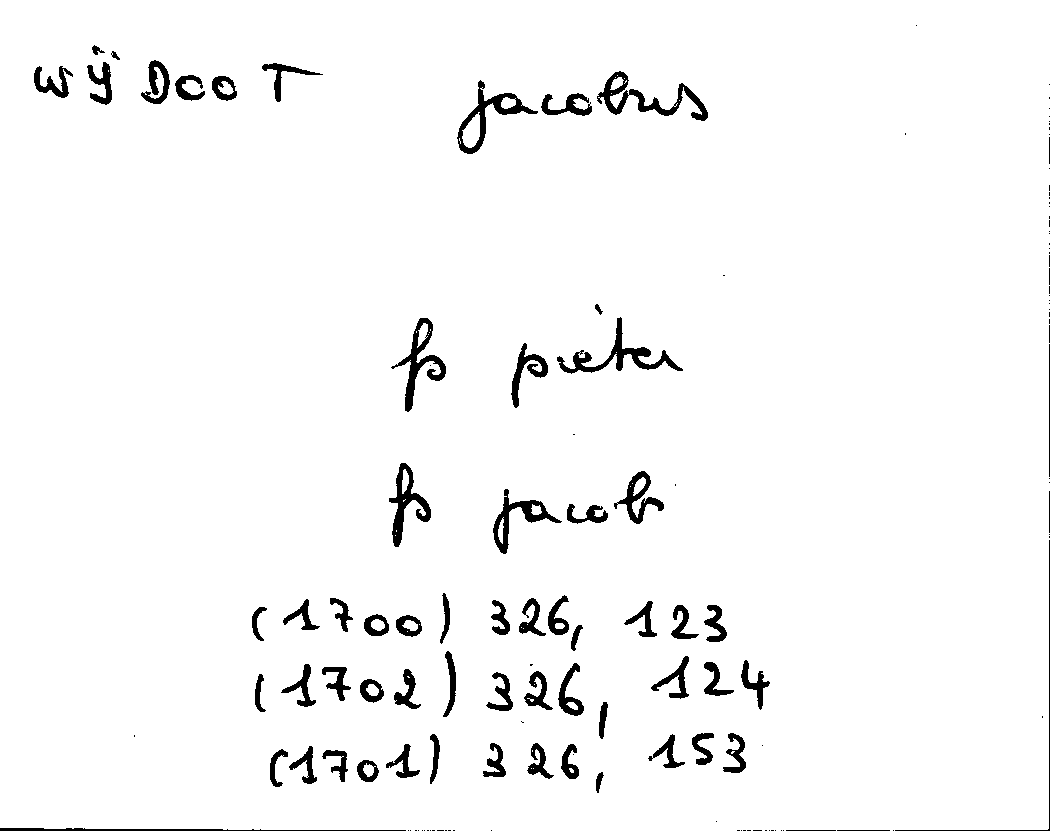 WŸDOOT jacobus
fs pieter
fs jacob
(1700) 326, 123
(1702) 326, 124
(1701) 326, 153